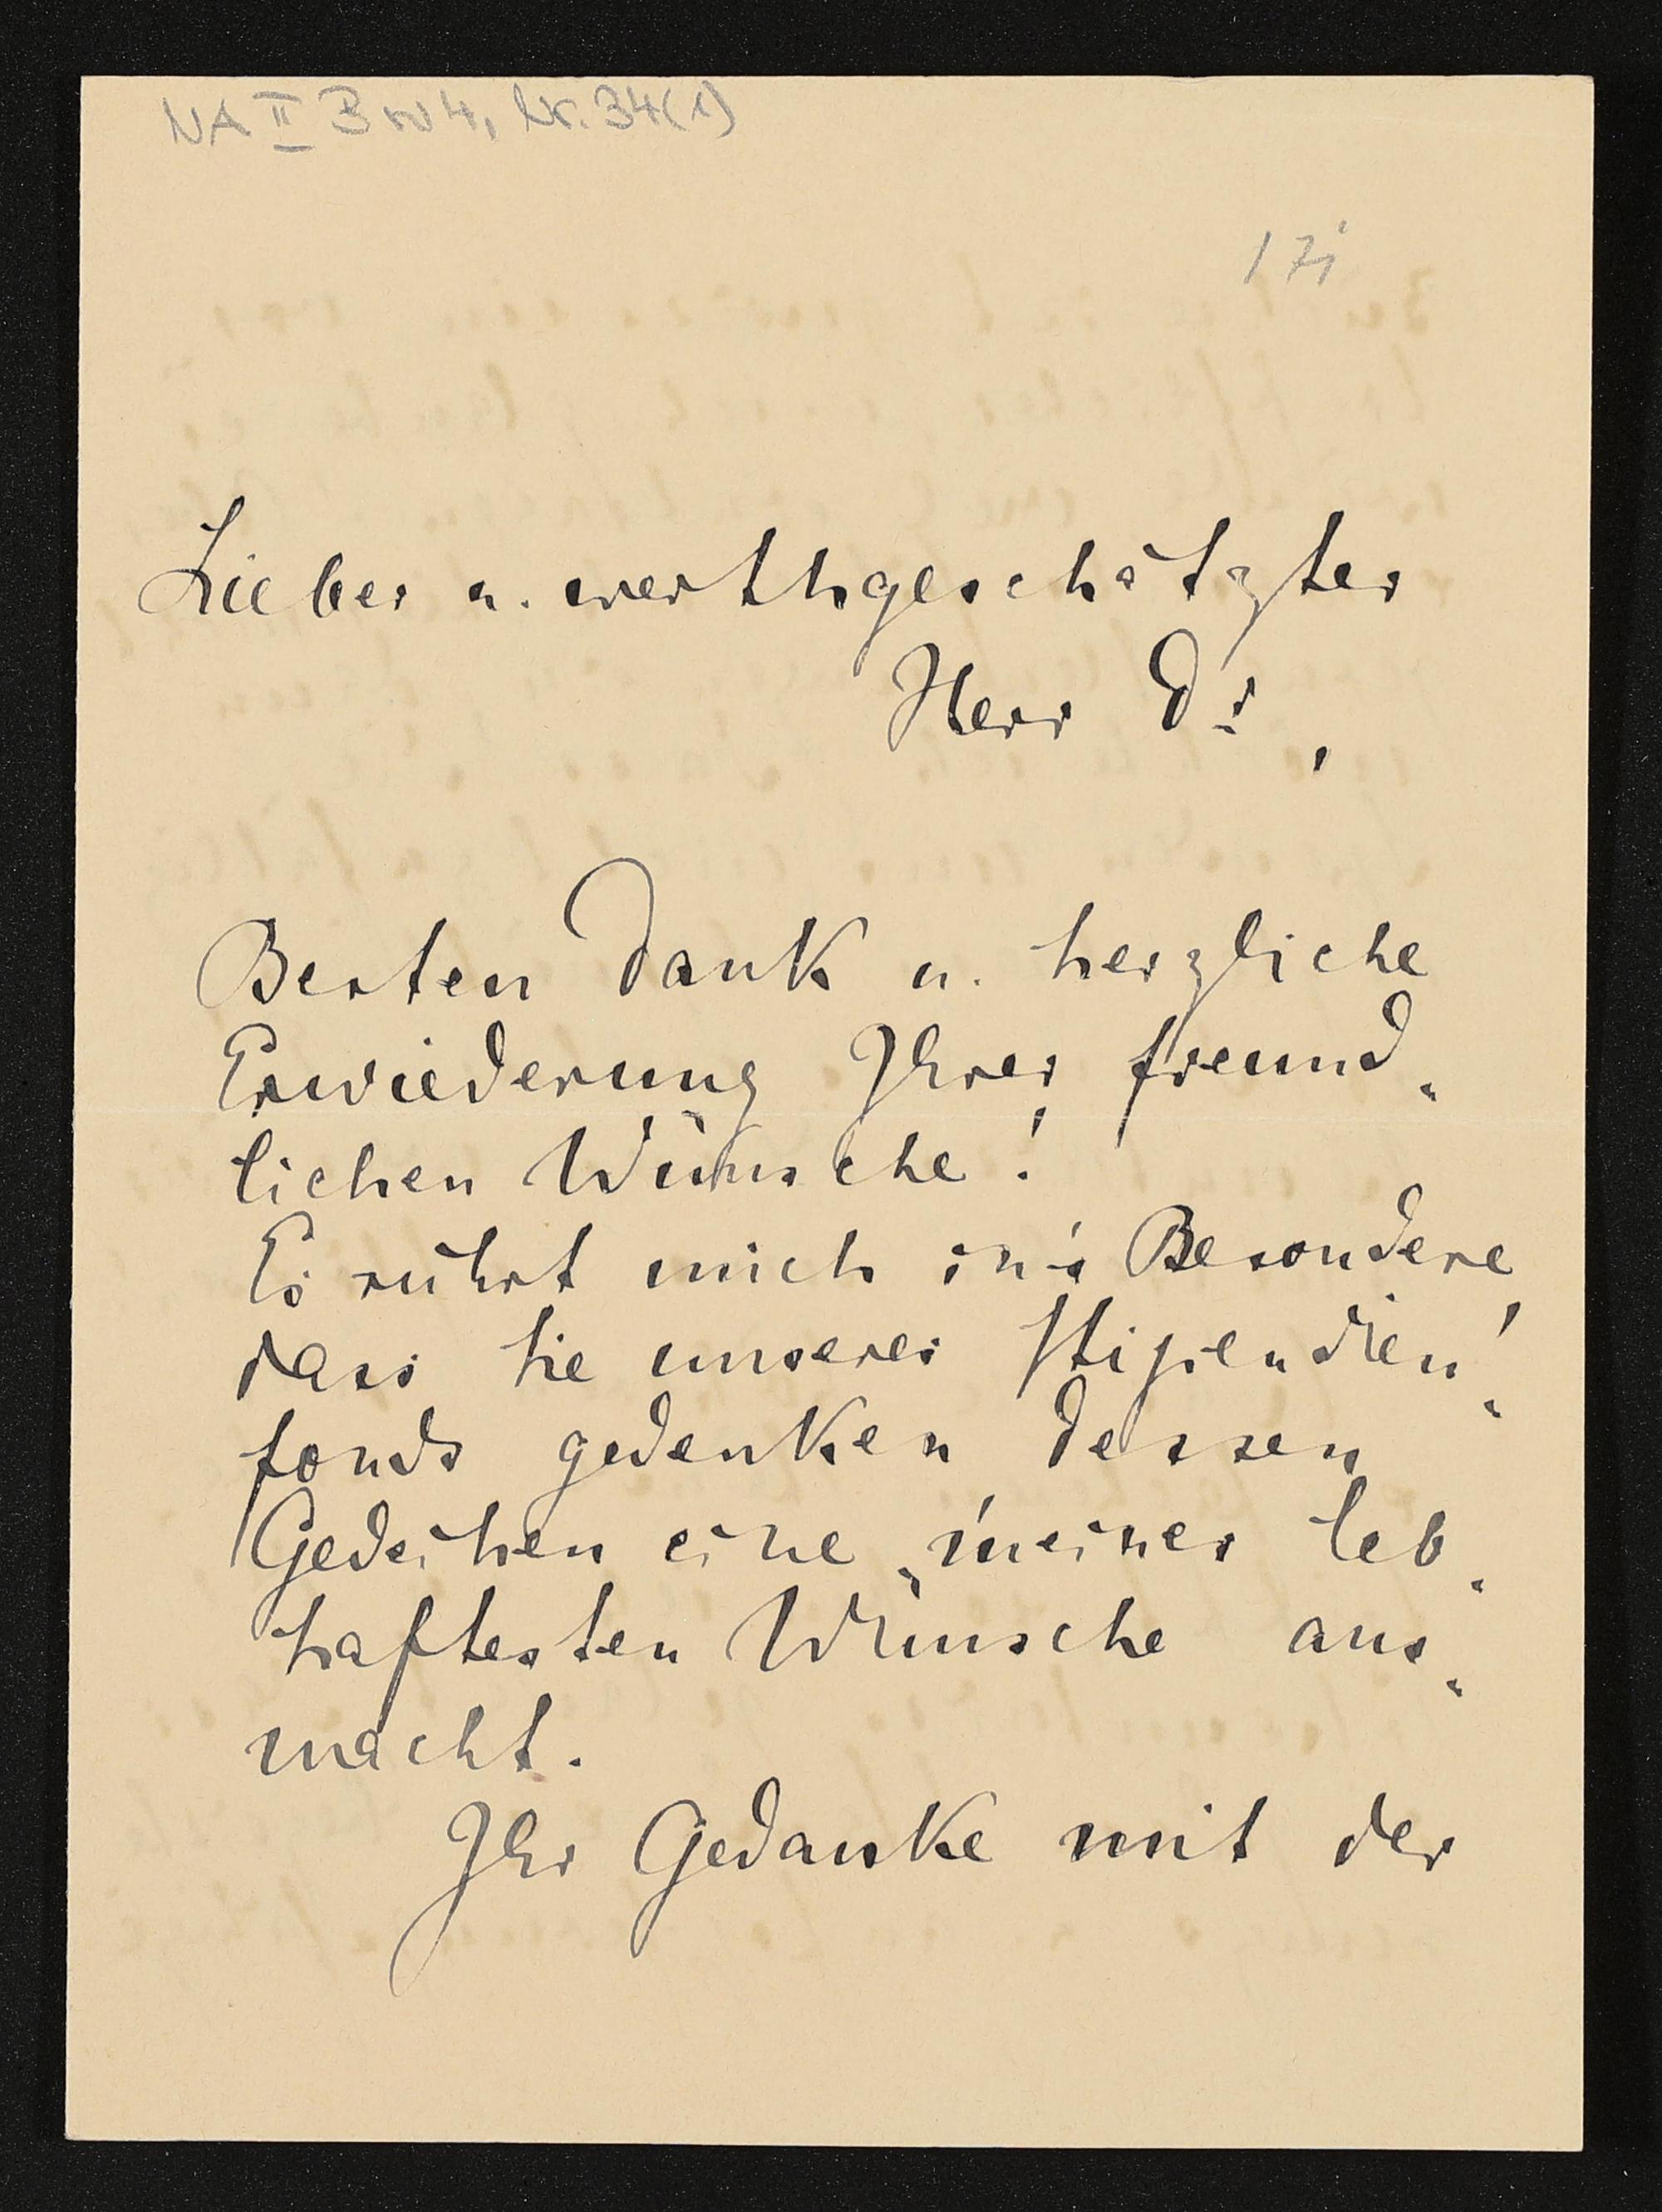 NA II B w 4, Nr. 34(1)
Lieber u. werthgeschätzter
Herr Dr,
Besten Dank u. herzliche
Erwiederung Ihrer freund„
lichen Wünsche!
Es rührt mich in's Besondere
dass Sie unseres Stipendien„
fonds gedenken dessen
Gedeihen eine meiner leb„
haftesten Wünsche aus„
macht.
Ihr Gedanke mit der